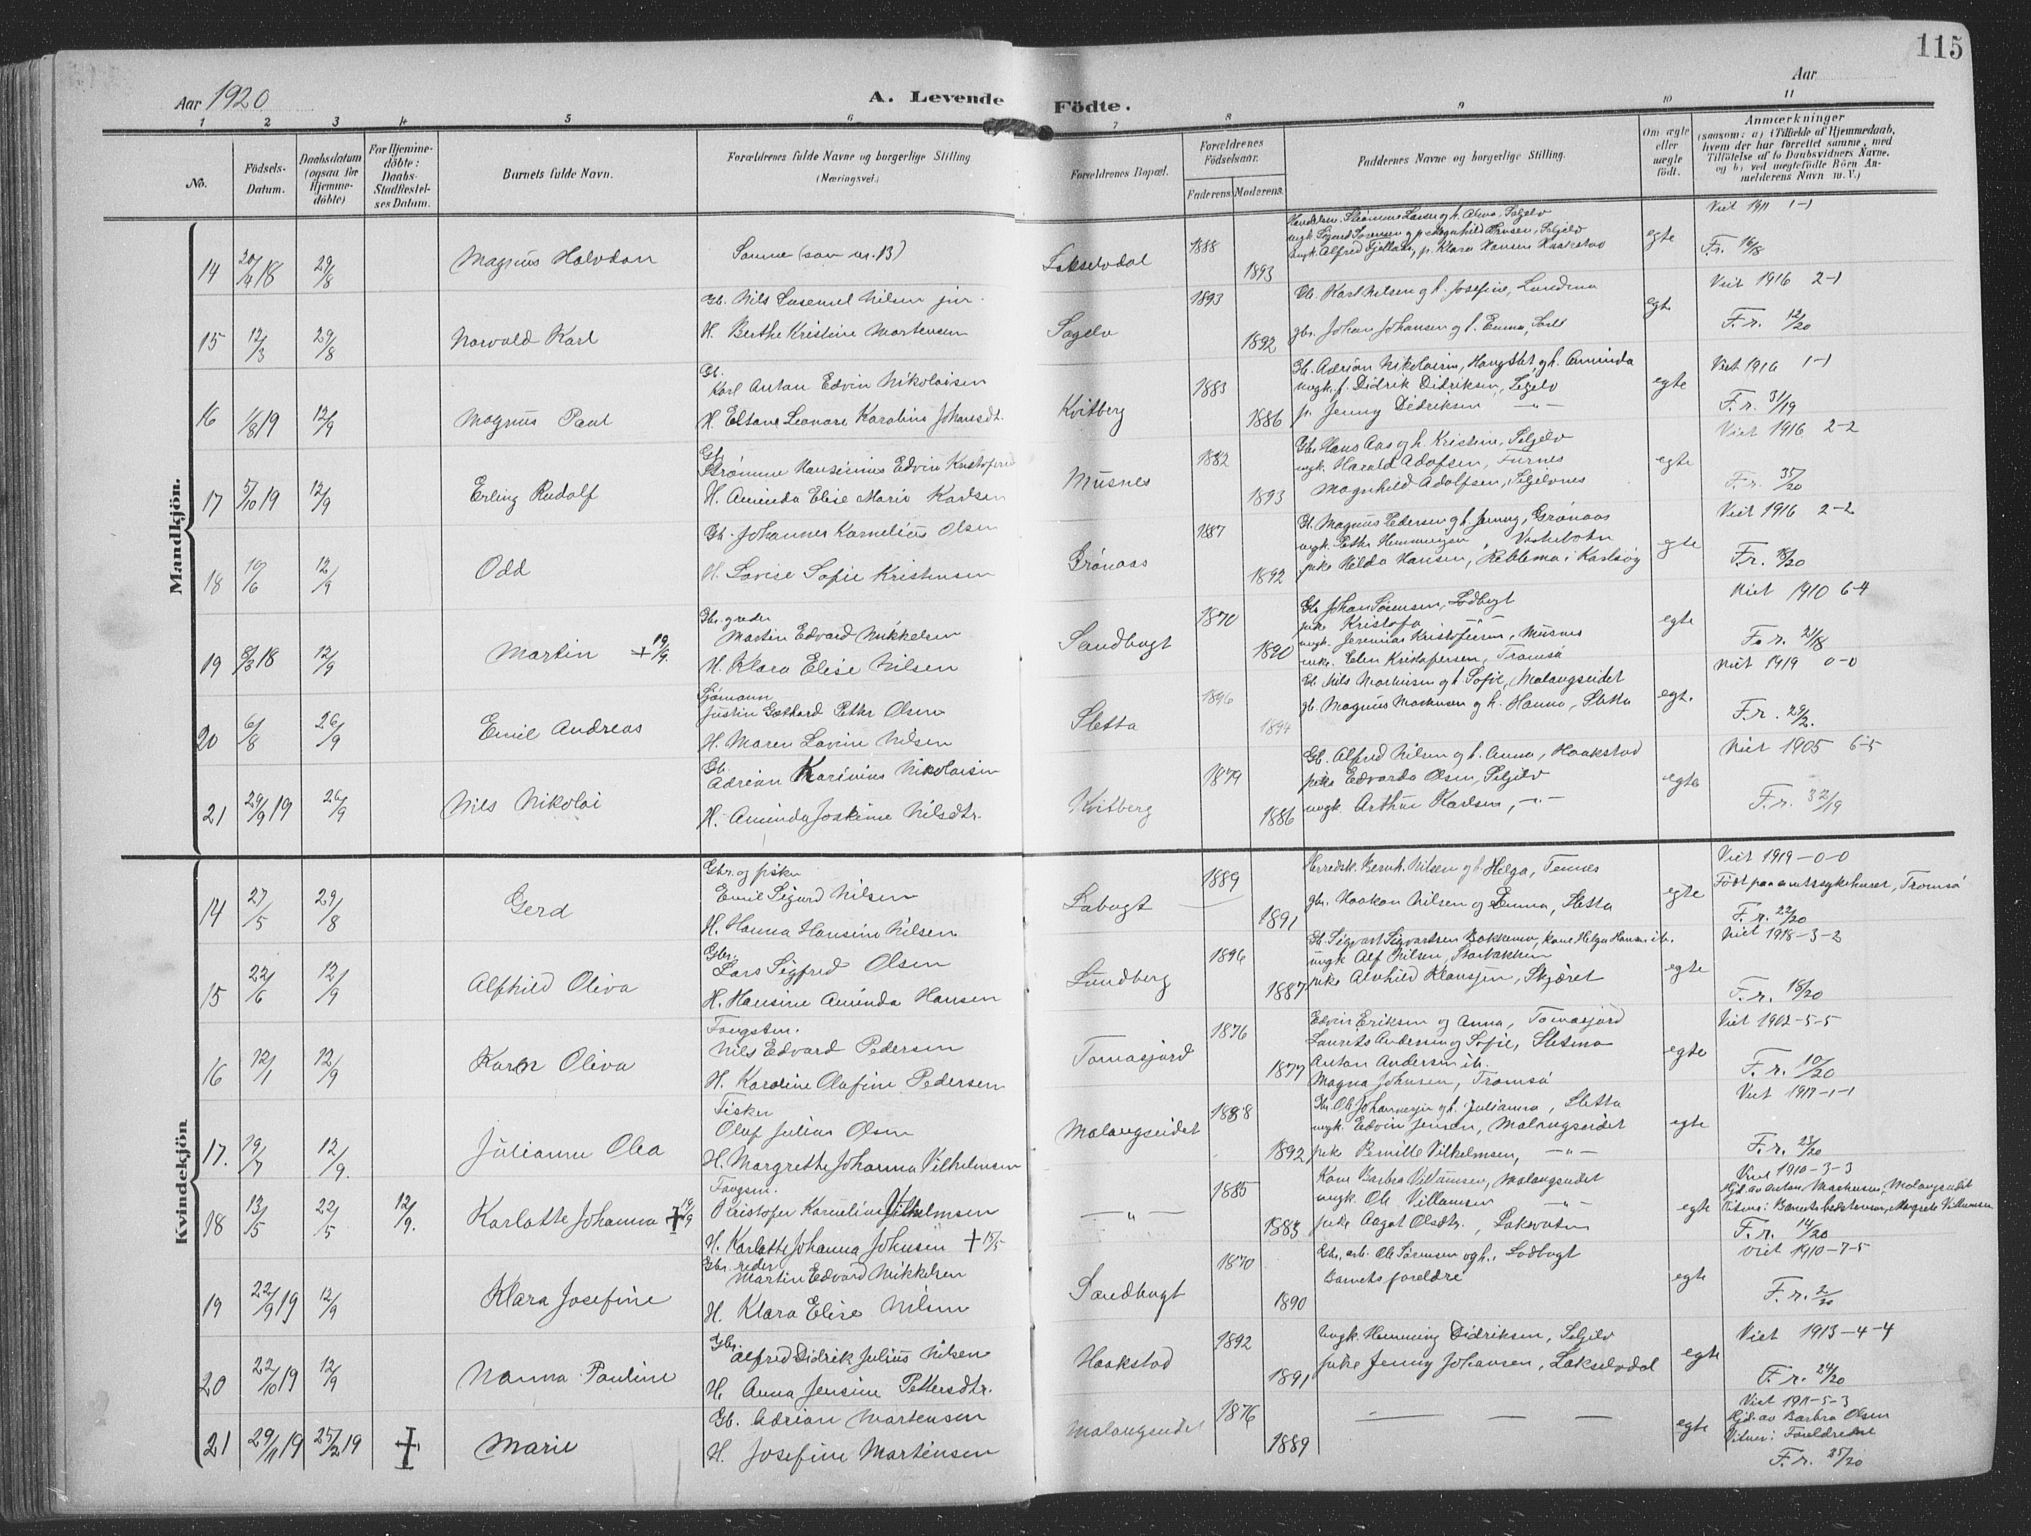 115
Aar 1920
A. Levende Födte.
Aar
1 2 3 4 5 6 7 8 9 10 11
No.
Födsels-Datum.
Daabsdatum (ogsaa for Hjemmedöbte)
For Hjemmedöbte: Daabs-Stadfestelses Datum.
Barnets fulde Navn.
Forældrenes fulde Navne og borgerlige Stilling (Næringsvei.)
Forældrenes Bopæl.
Forældrenes Födselsaar.
Faderens Moderens.
Faddernes Navne og borgerlige Stilling.
Om ægte eller uægte födt.
Anmærkninger
(saasom: a) i Tilfælde af Hjemmedaab, hvem der har forrettet samme, med Tilföielse af to Daabsvidners Navne, og b) ved uægtefödte Börn Anmelderens Navn m. V.)
Mandkjön.
14 20/4 18 29/8 Magnus Halvdan Samme (som nr. 13) Lakselvdal 1888 1893 egte Viet 1911 1-1
F.r. 16/18
15 12/3 29/8 Norvald Karl Gb. Nils Nilsen jur.
H. Berthe Kristine Mortensen Sagelv 1893 1892
Gb. Karl Nilsen og h. Josefine, Lundmo
gbr. Johan Johansen og h. Emma, egte Viet 1916 2-1
F.r. 12/20
16 1/8 19 12/9 Magnus Paul Gb.
Karl Anton Edvin Nikolaisen
H. Eltane Leonore Karoline Johansdt. Kvitberg 1883 1886
Gb. Adrian Nikolaisen, og h. Aminda
ungk. f. Didrik Didriksen, Seljelv
p. Jenny Didriksen —"— egte Viet 1916 1-1
F.r. 31/19
17 5/10 19 12/9 Erling Rudolf Gb.
Strømme Hansinius Edvin Kristofersen
H. Aminda Elise Marie Karlsen Musnes 1882 1893
Gb. Hans Aas og h. Kristine, Seljelv
ungk. Harald Adolfsen, Furnes
Magnhild Adolfsen, Seljelvnes egte Viet 1916 2-2
F.r. 35/20
18 10/6 12/9 Odd Gb. Johannes Kornelius Olsen
H. Lovise Sofie Kristensen Grønaas 1887 1892
Gb. Magnus Pedersen og h. Jenny, Grønaas
ungk. Petter Hemmingsen, Vestebotn
pike Hilda Hansen, i Karlsøy egte Viet 1916 2-2
F.r. 18/20
19 8/3 18 12/9 Martin + 19/9. Gbr. greder
Martin Edvard Mikkelsen
H. Klara Elise Nilsen Sandbugt 1870 1890
Gb. Johan Sørensen, Lodbugt
pike Kristofa —"—
ungk. Jeremias Kristofersen, Musnes
pike. Elen Kristofersen, Tromsø egte Viet 1910 6-4
F.r. 21/18
20 6/8 26/9 Emil Andreas Sjømann
Justin Gothard Petter Olsen
H. Maren Lovise Nilsen Sletta 1896 1894
Gb. Nils Martinsen og h. Sofie, Malangseidet
gb. Magnus Markussen og h. Hanna, Sletta egte. Viet 1919 0-0
F.r. 29/2.
21 29/9 19 26/9 Nils Nikolai Gb.
Adrian Karinius Nikolaisen
H. Aminda Joskime Nilsdtr. Kvitberg 1879 1886
Gb. Alfred Nilsen og h. Anna, Haakstad
pike Edvarda Olsen, Seljelv
ungk. Arthur Karlsen, —"— egte Viet 1905 6-5
F.r. 32/19
Kvindekjön
14 27/5 29/8 Gerd Gbr. og fisker
Emil Sigurd Nilsen
H. Hanna Hansine Nilsen Labugt 1889 1891
Herredsk. Bernh. Nilsen og h. Helga, Tennes
gbr. Haakon Nilsen og Emma, Sletta egte Viet 1919-0-0
Født paa amtssykehuset, Tromsø
F.r. 22/20
15 22/6 12/9 Alfhild Oliva Gbr.
Lars Sigfred Olsen
H. Hansine Aminda Hansen Lundberg 1896 1887
Gb. Sigvart Sigvartsen Bakkemo, kone Helga Hansen ib.
ungk Alf Nilsen, Storbakken
pike Alvhild Klausen, Skjæret egte Viet 1918-3-2
F.r. 18/20
16 12/1 12/9 Karen Oliva Fangstm.
Nils Edvard Pedersen
H. Karoline Olafine Pedersen Tomasjord 1876 1877
Edvin Eriksen og Anna, Tomasjord
Laurits Andersen og Sofie, Sletmo
Anton Andersen ib.
Magna Johnsen, Tromsø egte Viet 1902-5-5
F.r. 10/20
17. 19/7 12/9. Julianne Olea Fisker
Oluf Julius Olsen
H. Margrethe Johanna Vilhelmsen Malangseidet 1888 1892
Gbr. Ole Johannesen og h. Julianna, Sletta
ungk. Edvin Jensen, Malangseidet
pike Bernitte Vilhelmsen, —"— egte Viet 1917-1-1
F.r. 23/20
18 13/5 22/5 12/9. Karlotte Johanna + 19/9 Fangsm.
Kristofer Kornelius Vilhelmsen
H. Karlotte Johanna Johnsen + 15/5 —"— 1885 1883
Kone Barbra Villumsen, Malangseidet
ungk. Ole Villumsen —"—
pike Aagot Olsdtr., Laksvatn egte Viet 1910-3-3
Hjd. av Anton Markussen, Malangseidet
Vitner: Margrete Villumsen
F.r. 14/20
19 22/9 19 12/9 Klara Josefine Gbr. reder
Martin Edvard Mikkelsen
H. Klara Elise Nilsen Sandbugt 1870 1890
Gbr. arb. Ole Sørensen og h., Lodbugt
Barnets foreldre egte Viet 1910-7-5
F.r. 2/20
20 22/10 19 12/9 Nanna Pauline Gbr.
Alfred Didrik Julius Nilsen
H. Anna Jensine Pettersdtr. Haakstad 1892 1891
Ungk. Hemming Didriksen, Seljelv
pike Jenny Johansen, Lakselvdal egte Viet 1913-4-4
F.r. 24/20
21 29/11 19 25/2 19 + Marie Gb. Adrian Martensen
H. Josefine Martensen Malangseidet 1876 1889 — — — — egte Viet 1911-5-3
Hjd. av Barbra Olsen
Vitner: Foreldrene
F.r. 25/20